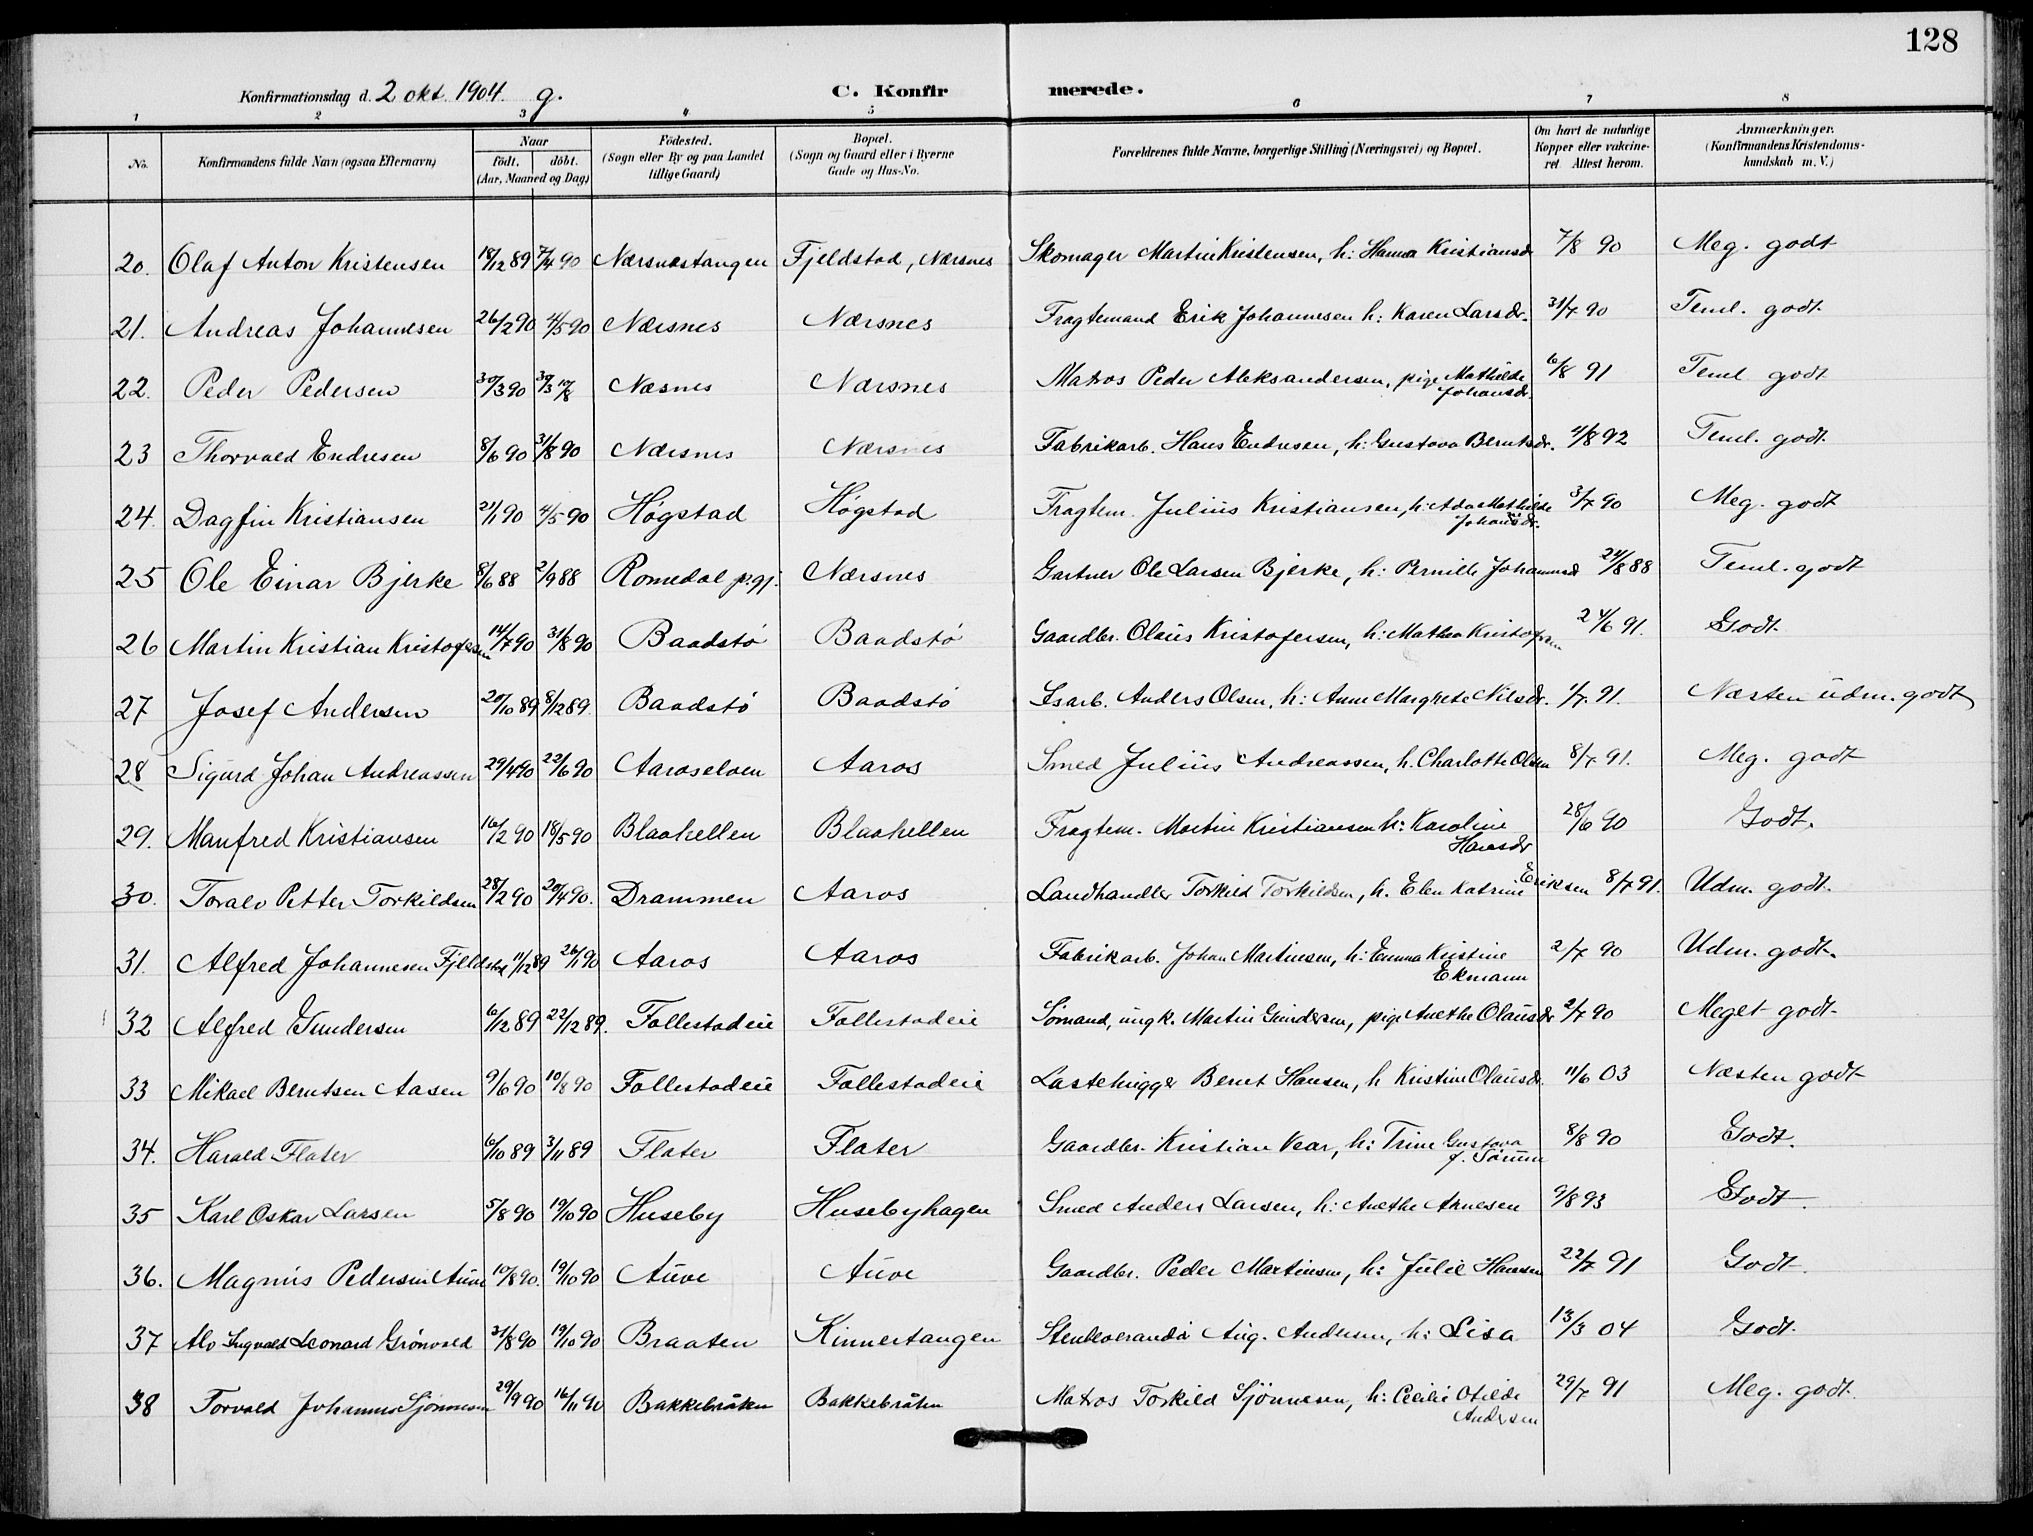 128
Konfirmationsdag d. 2 okt. 1904. g. C. Konfirmerede.
1 2 3 4 5 6 7 8
No. Konfirmandens fulde Navn (ogsaa Efternavn) Naar födt. döbt. (Aar, Maaned og Dag) Födested. (Sogn eller By og paa Landet tillige Gaard) Bopæl. (Sogn og Gaard eller i Byerne Gade og Hus-No. Forældrenes fulde Navne, borgerlige Stilling (Næringsvei) og Bopæl. Om havt de naturlige Kopper eller vakcineret Attest herom. Anmærkninger. (Konfirmandens Kristendomskundskab m. V.)
20. Olaf Anton Kristensen 18/12 89 7/4 90 Nærsnæstangen Fjeldstad, Nærsnes Skomager Martin Kristensen, h: Hanna Kristiansd 7/8 90 Meg. godt
21. Andreas Johannesen 26/2 90 4/5 90 Nærsnes Nærsnes Fragtemand Erik Johannesen h: Karen Larsdr. 31/7 90 Teml. godt
22. Peder Pedersen 30/3 90 Næsnes Nærsnes Matros Peder Aleksandersen, pige Mathilde Johansdr. 6/8 91 Teml godt
23 Thorvald Endresen 8/6 90 31/8 90 Nærsnes Nærsnes Fabrikarb. Hans Endresen, h: Gustava Berntsdr. 4/8 92 Teml. godt
24. Dagfin Kristiansen 21/1 90 4/5 90 Høgstad Høgstad Fragtem. Julius Kristiansen, h: Ada Mathilde Johansdr. 3/7 90 Meg. godt
25 Ole Einar Bjerke 8/6 88 2/9 88 Romedal prgj. Nærsnes Gartner Ole Larsen Bjerke, h: Pernille Johannesd 24/8 88 Teml. godt
26 Martin Kristian Kristofersen 14/7 90 31/8 90 Baadstö Baadstö Gaardbr. Olaus Kristofersen, h: Mathea Kristofersen 24/6 91. Godt
27 Josef Andersen 20/10 89 8/12 89. Baadstö Baadstö Isarb. Anders Olsen, h: Anne Margrete Nilsdr. 1/7. 91. Næsten udm. godt
28 Sigurd Johan Andreassen 29/4 90 22/6 90 Aaroselven Aaros Smed Julius Andreassen, h. Charlotte Olsen 8/7 91. Meg. godt
29. Manfred Kristiansen 16/2 90 18/5 90 Blaahellen Blaahellen Fragtem. Martin Kristiansen h: Karoline Hansdr 28/6 90 Godt.
30. Toralv Petter Torkildsen 28/2 90 20/4 90. Drammen Aaros Landhandler Torkild Torkildsen, h. Elen Katrine Eriksen 8/7 91. Udm. godt.
31. Alfred Johannesen Fjeldstad 11/12 89 26/1 90 Aaros Aaros Fabrikarb. Johan Martinsen, h: Emma Kristine Ekmann 2/7 90 Udm. godt.
32 Alfred Gundersen 6/12 89 22/12 89. Follestadeie Follestadeie Sömand, ungk. Martin Gundersen, pige Anethe Olausdr 2/7 90 Meget godt
33 Mikael Berntsen Aasen 9/6 90 10/8 90 Follestadeie Follestadeie Lastehugger Bernt Hansen, h Kristine Olausdr. 11/6 03 Næsten godt
34. Harald Flater 6/10 89 3/11 89 Flater Flater Gaardbr. Kristian Vear, h: Trine Gustava f. Sörum 8/8 90 Godt.
35 Karl Oskar Larsen 5/8 90 19/10 90 Huseby Husebyhagen Smed Anders Larsen, h: Anethe Arnesen 9/8 93 Godt.
36. Magnus Pedersen Auve 10/8 90. 19/10 90 Auve Auve Gaardbr. Peder Martinsen, h: Julie Hansen 22/7 91 Godt.
37 Alv Ingvald Leonard Grönvold 21/8 90 19/10 90 Braaten Kinnertangen Stenleverandö Aug. Andersen, h: Lisa 13/3 04 Godt.
38 Torvald Johannes Sjönnesen 29/9 90 16/11 90 Bakkebråten Bakkebråten Matros Torkild Sjönnesen, h: Cecilie Otilde Andersen 29/7 91 Meg. godt.